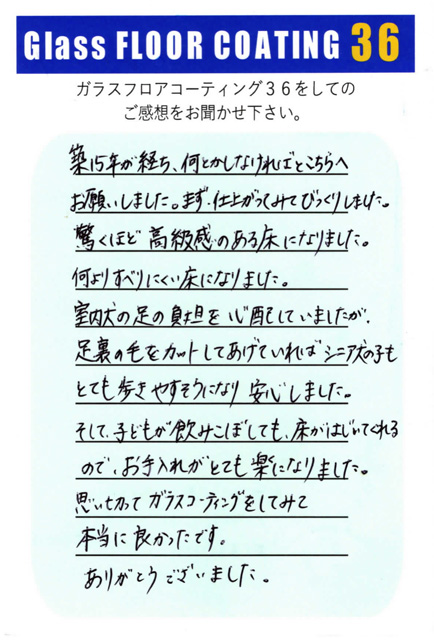 Glass FLOOR COATING 36
ガラスフロアコーティング36をしての
ご感想をお聞かせ下さい。
築15年が経ち、何とかしなければとこちらへ
お願いしました。まず、仕上がってみてびっくりしました。
驚くほど 高級感のある床になりました。
何よりすべりにくい床になりました。
室内犬の足の負担を心配していましたが、
足裏の毛をカットしてあげていれば シニア犬の子も
とても歩きやすそうになり 安心しました。
そして、子どもが飲みこぼしても、床がはじいてくれる
ので、お手入れがとても楽になりました。
思い切って ガラスコーティングをしてみて
本当に良かったです。
ありがとうございました。